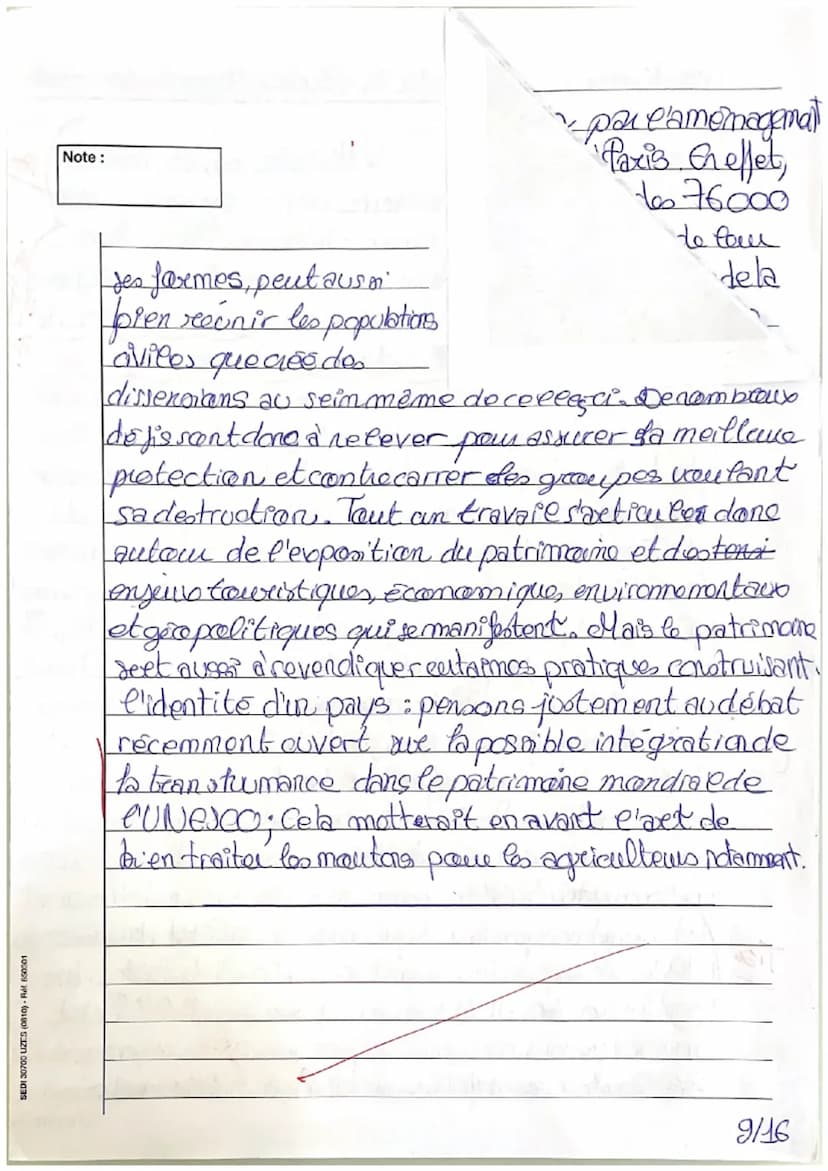 par l'aménagement
Paris. En effet,
des 76000
de tour
de la
Note :
ses formes, peut aussi
bien réunir les populations
civiles que créé des
dissensions au sein même de celles-ci. De nombreux
défis sont donc à relever pour assurer sa meilleure
protection et contrecarrer des groupes voulant
sa destruction. Tout un travail s'articule donc
autour de l'exposition du patrimoine et des tensi
enjeux touristiques, économique, environnementaux
et géopolitiques qui se manifestent. Mais le patrimoine
sert aussi à revendiquer certaines pratiques construisant
l'identité d'un pays : pensons justement au débat
récemment ouvert sur la possible intégration de
la transhumance dans le patrimoine mondial de
l'UNESCO ; Cela metterait en avant l'art de
bien traiter les moutons pour les agriculteurs notamment.
SEDI 30700 UZES (0810) - Réf. 650501
9/16